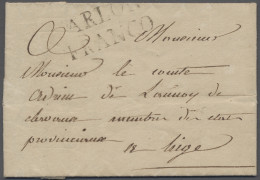 ARLON
FRANCO
Monsieur
Monsieur le comte
de Lannoy de
membre des états
provinciaux
a Liege